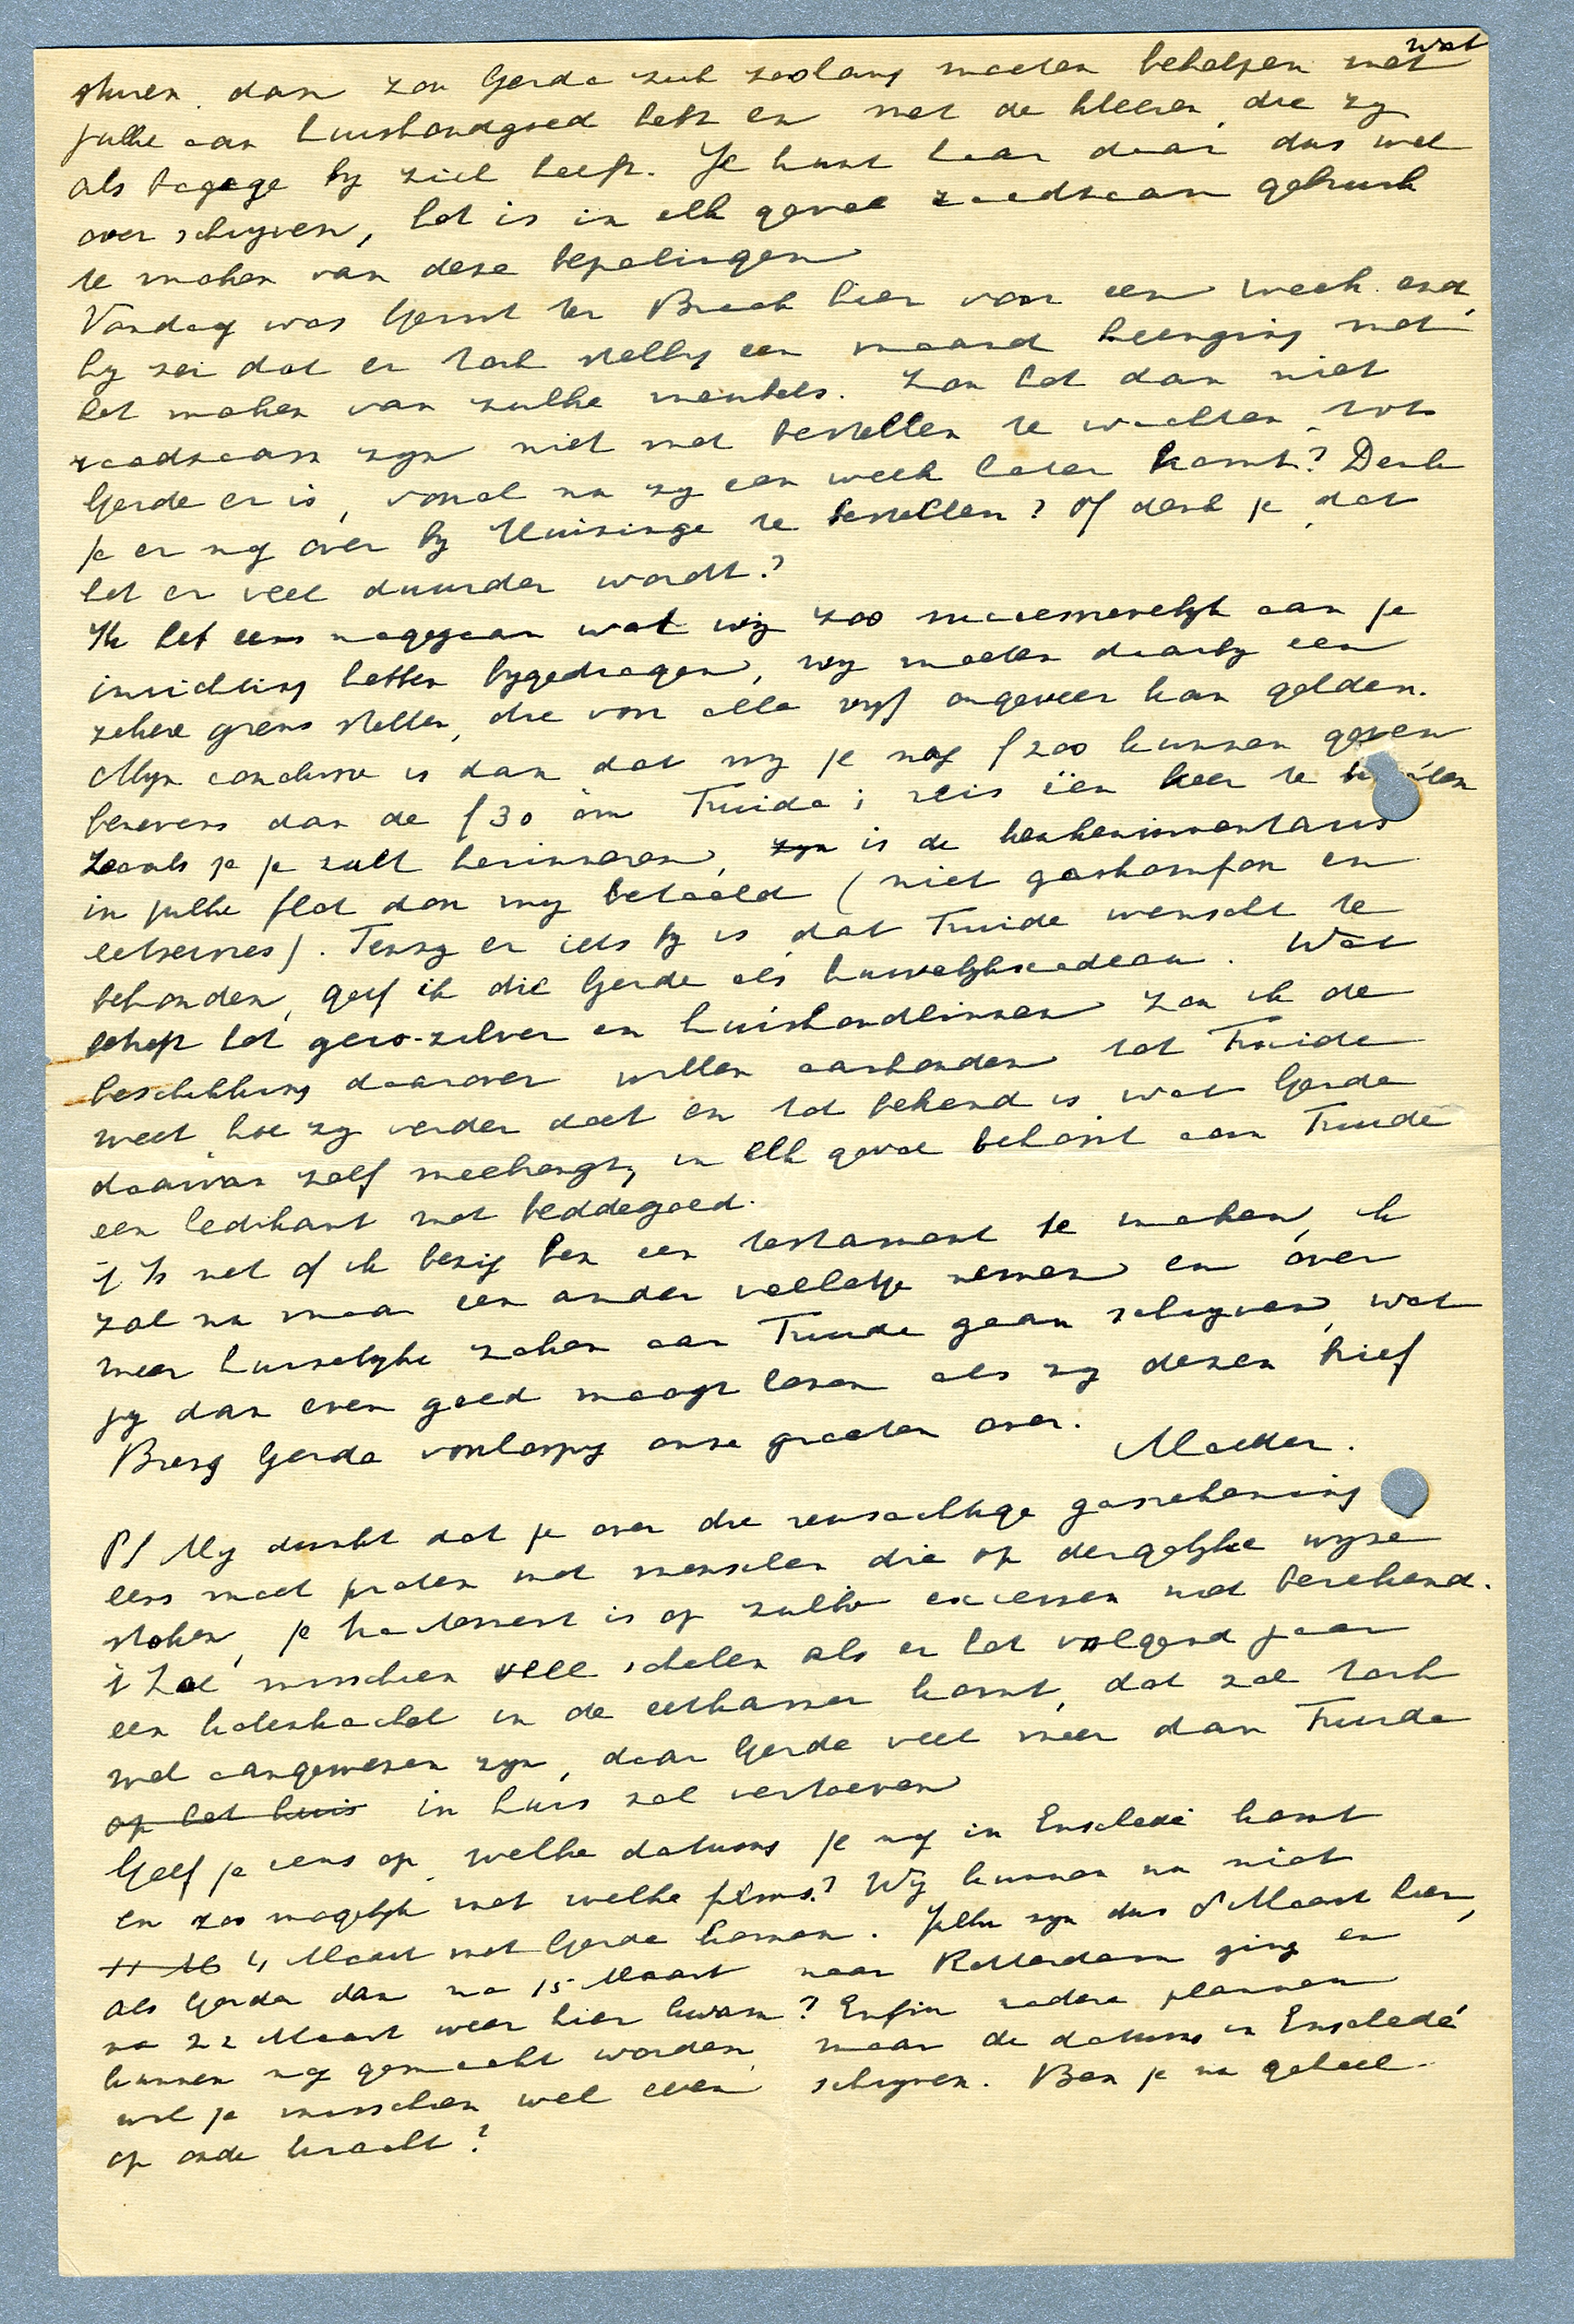 sturen. dan zou Gerda zich zoolang moeten behelpen met wat
jullie aan huishoudgoed hebt en met de kleeren die zy
als bagage by zich heeft. Je kunt haar daar dus wel
over schryven, het is in elk geval raadzaam gebruik
te maken van deze bepalingen
Vandaag was Gerrit ter Braak hier voor een week-end,
hy zei dat er toch stellig een maand heenging met
het maken van zulke meubels. Zou het dan niet
raadzaam zyn niet met bestellen te wachten tot
Gerda er is, vooral nu zy een week later komt? Denk
je er nog over by Huisinga te bestellen? Of denk je dat
het er veel duurder wordt?
Ik heb eens nagegaan wat wij zoo successievelyk aan je
inrichting hebben bygedragen, wy moeten daarby een
zekere grens stellen, die voor alle vyf ongeveer kan gelden.
Myn conclusie is dan dat wy je nog f 200 kunnen geven
benevens dan de f 30 om Truida's reis één keer te betalen
Zooals je je zult herinneren, zyn is de keukeninventaris
in jullie flat door my betaald (niet gaskomfoor en
eetservies). Tenzy er iets by is, dat Truida wenscht te
behouden, geef ik die Gerda als huwelykscadeau. Wat
betreft het gero-zilver en huishoudlinnen zou ik de
beschikking daarover willen aanhouden tot Truida
weet hoe zy verder doet en tot bekend is wat Gerda
daarvan zelf meebrengt, in elk geval behoort aan Truida
een ledikant met beddegoed.
't Is net of ik bezig ben een testament te maken, ik
zal nu maar een ander velletje nemen en over
meer huiselyke zaken aan Truida gaan schryven, wat
jy dan even goed moogt lezen als zy dezen brief
Breng Gerda voorloopig onze groeten over.
Moeder.
PS My dunkt dat je over die reusachtige gasrekening
eens moet praten met menschen die op dergelyke wyze
stoken, je tractement is op zulke excessen niet berekend.
't Zal misschien veel schelen als er het volgend jaar
een kolenkachel in de eetkamer komt, dat zal toch
wel aangewezen zyn, daar Gerda veel meer dan Truida
op het huis in huis zal vertoeven
Geef je eens op welke datums je nog in Enschedé komt
en zoo mogelyk met welke films? Wij kunnen nu niet
4 Maart met Gerda komen. Jullie zyn dus 8 Maart hier,
als Gerda dan na 15 Maart naar Rotterdam ging en
na 22 Maart weer hier kwam? Enfin nadere plannen
kunnen nog gemaakt worden, maar de datums in Enschedé
wil je misschien wel even schryven. Ben je nu geheel
op oude kracht?